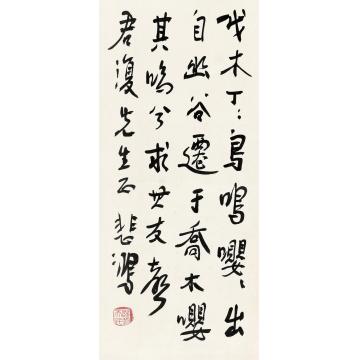 伐木丁〻鳥鳴嚶〻出
自幽谷遷于喬木嚶
其鳴兮求其友聲
君復先生正 悲鴻